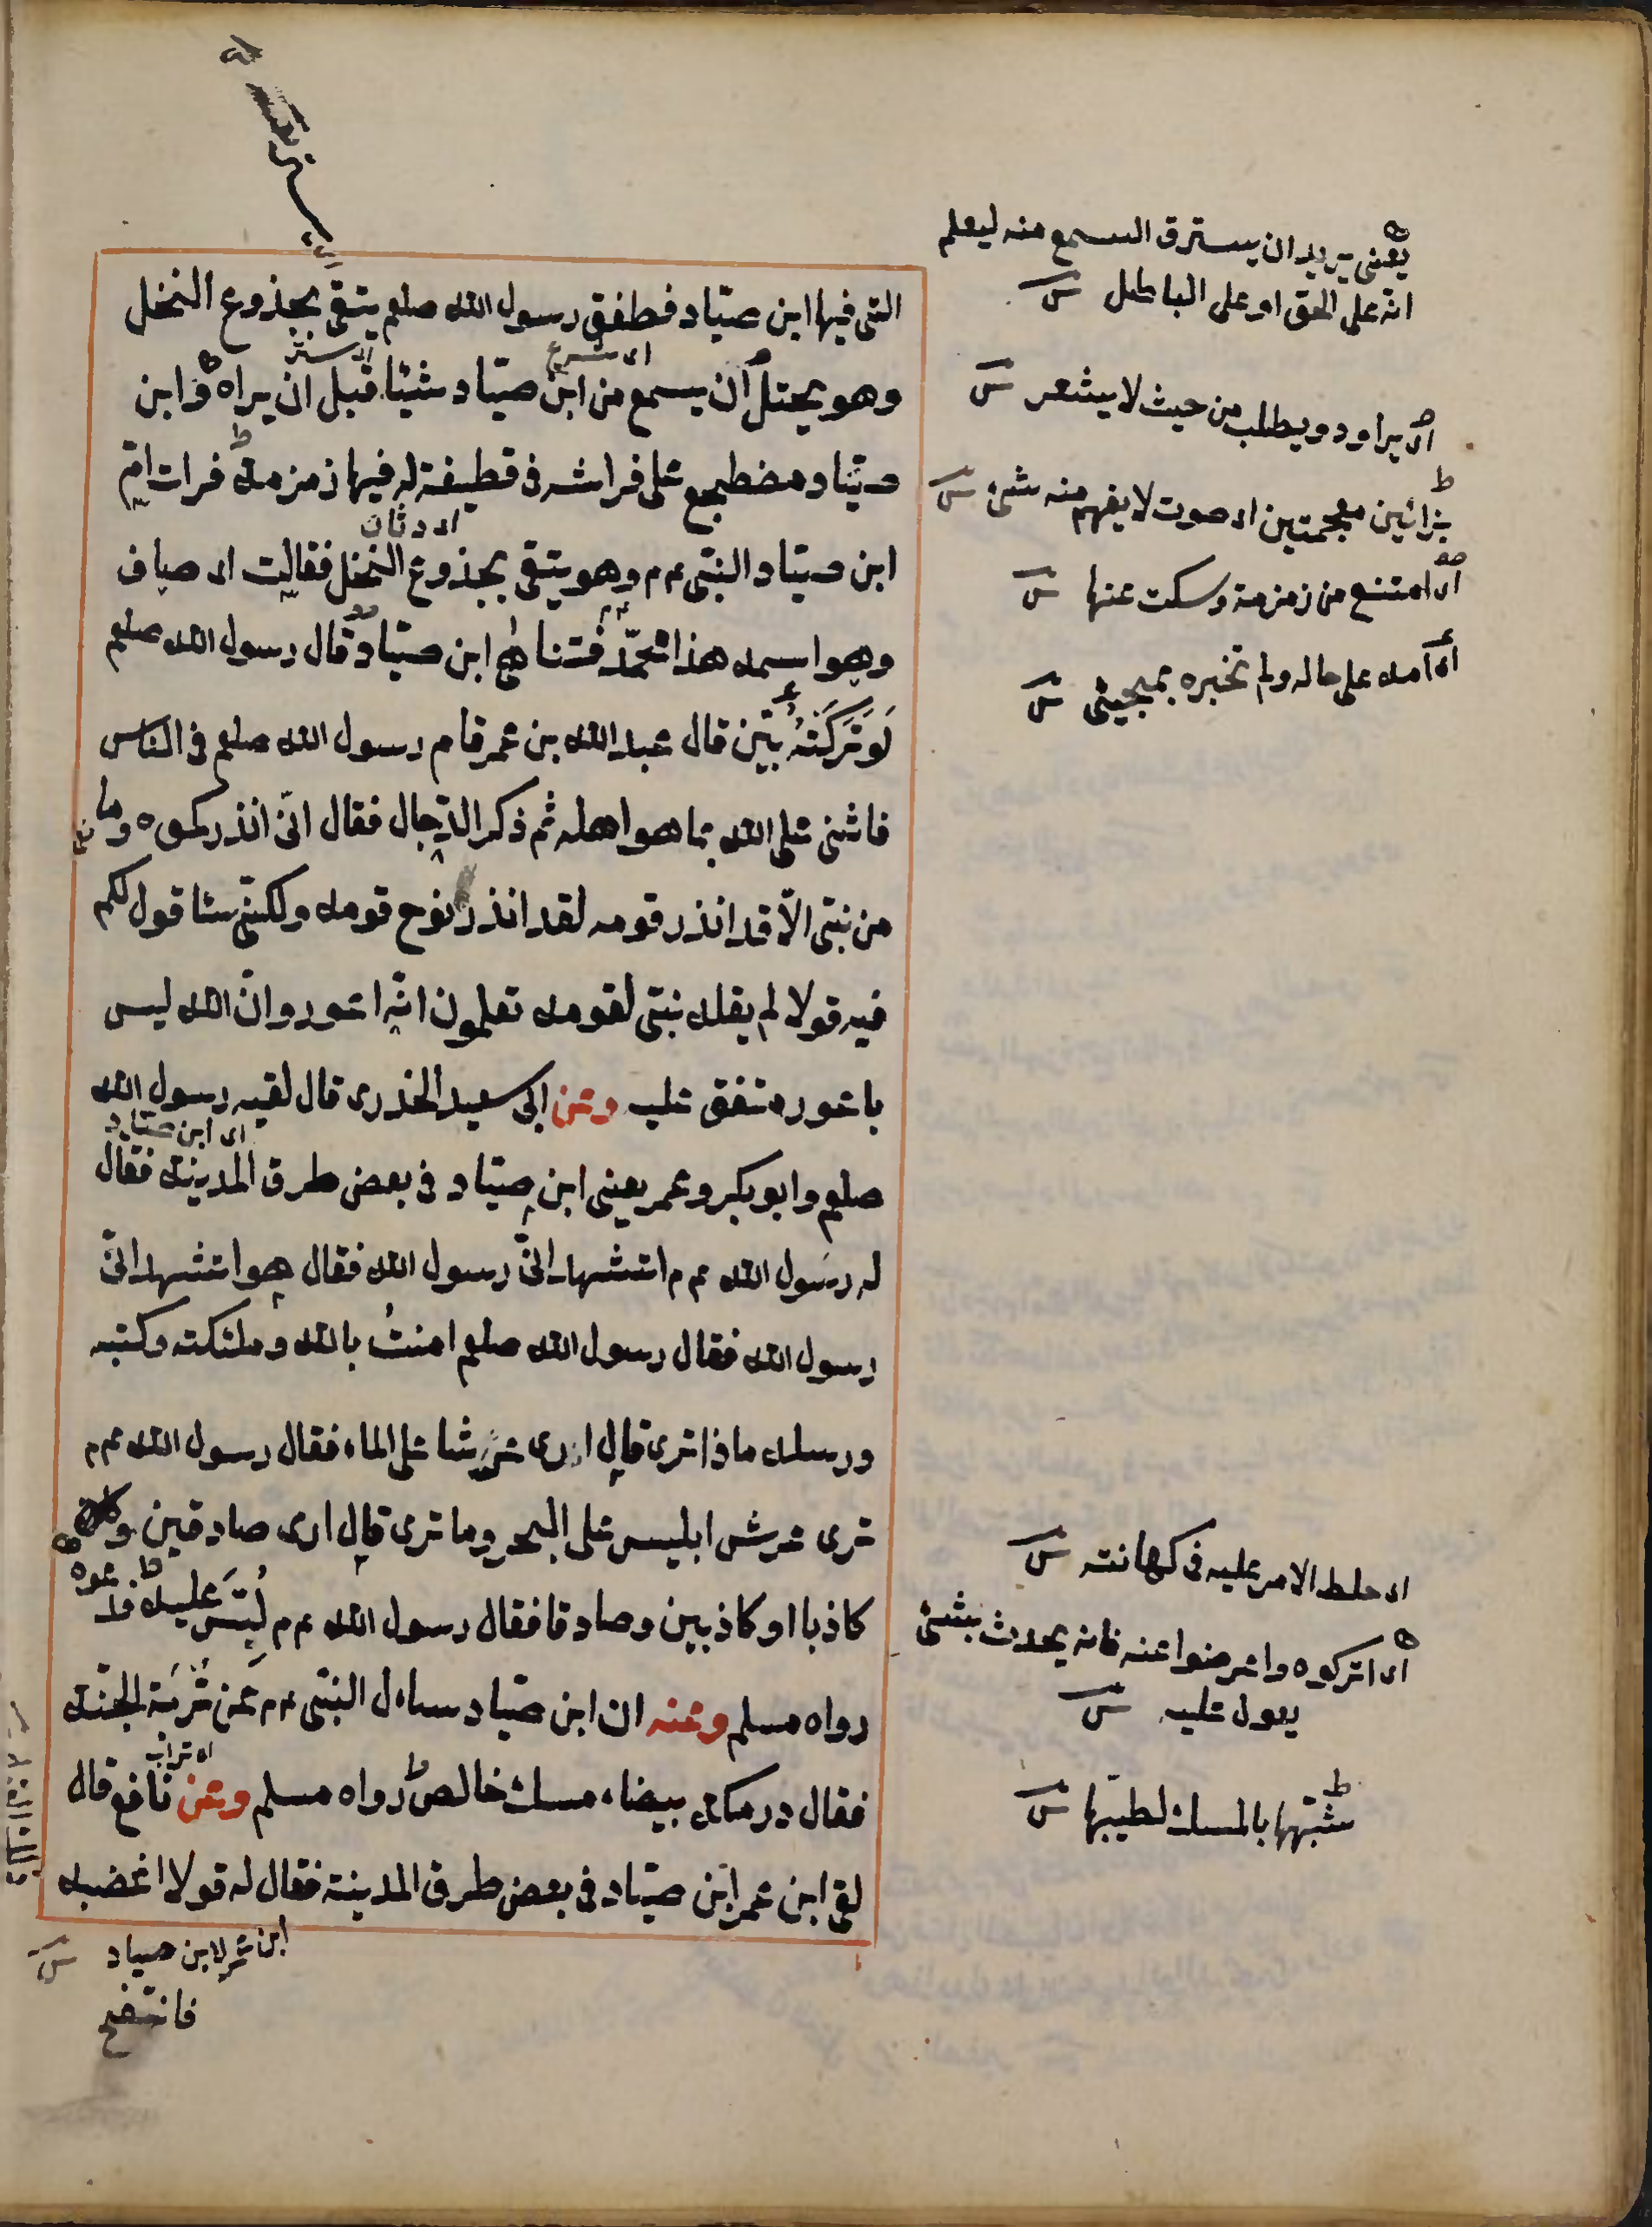 التى فيها ابن صيّاد فطفق رسول الله صلعم يتقى بجذوع النخل
اى شرع
اى يستتر
وهو يختل ان يسمع من ابن صيّاد شيئا قبل ان يراه وابن
صيّاد مضطجع على فراشه فى قطيفة له فيها زمزمة فرات امّ
اى رأت
ابن صيّاد النبى عم م وهو يتقى بجذوع النخل فقالت اى صاف
وهو اسمه هذا محمّد فتناهى ابن صيّاد قال رسول الله صلعم
لَوْ تَرَكَتْهُ بيّن قال عبد الله بن عمر قام رسول الله صلعم فى الناس
فاثنى على الله بما هو اهله ثم ذكر الدّجال فقال انّى انذركموه وما
من نبىّ الّا قد انذر قومه لقد انذر نوح قومه ولكنّى ساقول لكم
فيه قولا لم يقله نبىّ لقومه تعلمون انّه اعور وانّ الله ليس
باعور متفق عليه وعن ابى سعيد الخدرى قال لقيه رسول الله
اى ابن صيّاد
صلعم وابو بكر وعمر يعنى ابن صيّاد فى بعض طرق المدينة فقال
له رسول الله عم م اتشهد انّى رسول الله فقال هو اتشهد انّى
رسول الله فقال رسول الله صلعم امنتُ بالله وملئكته وكتبه
ورسله ماذا ترى قال ارى عرشا على الماء فقال رسول الله عم م
ترى عرش ابليس على البحر وما ترى قال ارى صادقين و
كاذبا او كاذبين وصادقا فقال رسول الله عم م لُبِّسَ عليه فدعوه
رواه مسلم وعنه ان ابن صيّاد سأل النبى عم م عن تُرْبَة الجنّة
اى تراب
فقال درمكة بيضاء مسك خالص رواه مسلم وعن نافع قال
لقى ابن عمر ابن صيّاد فى بعض طرق المدينة فقال له قولا اغضبه
ابن عمر لابن صياد
فانتفخ
يعنى يريد ان يسترق السمع منه ليعلم
انّه على الحق او على الباطل
اى يراود ويطلب من حيث لا يشعر
بزائين معجمتين اى صوت لا يفهم منه شئ
اى امتنع من زمزمة وسكت عنها
اى امه على حاله ولم تخبره بمجيئى
اى خلط الامر عليه فى كهانته
اى اتركوه واعرضوا عنه فانه يحدث بشئ
يعول عليه
شبّهها بالمسك لطيبها